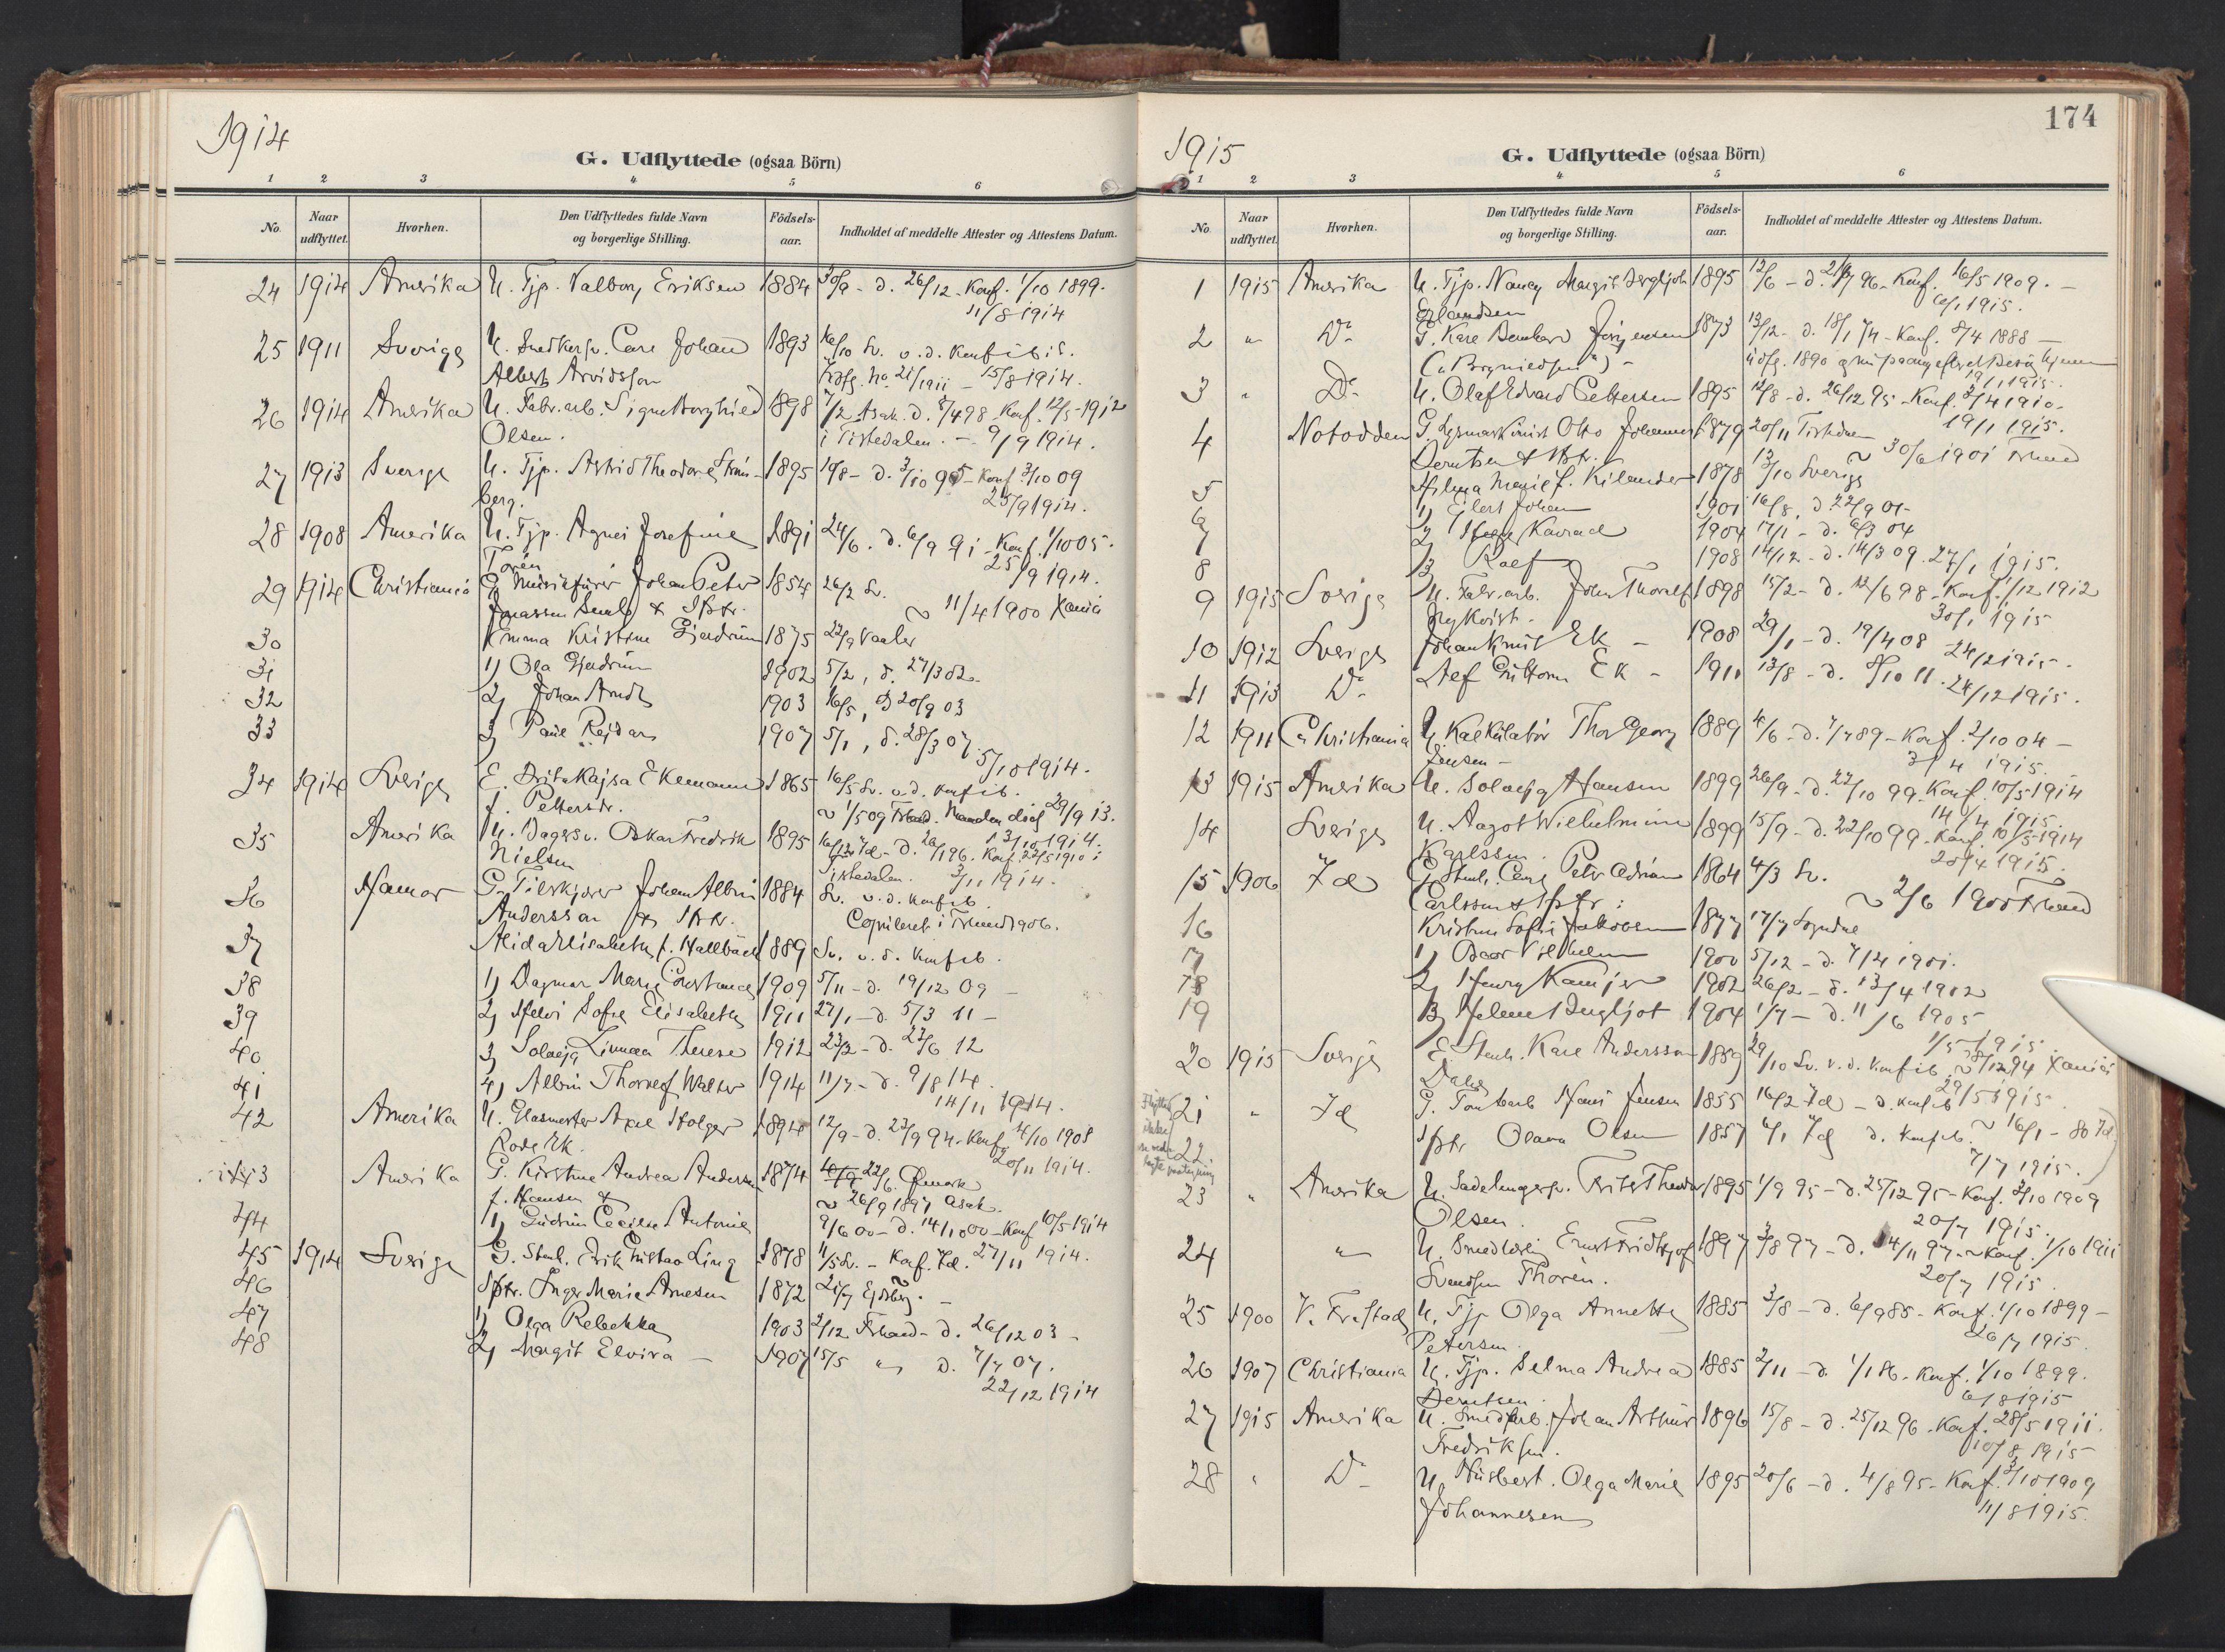 1914
G. Udflyttede (ogsaa Börn)
1 2 3 4 5 6
No. Naar udflyttet. Hvorhen. Den Udflyttedes fulde Navn og borgerlige Stilling. Födsels-aar. Indholdet af meddelte Attester og Attestens Datum.
24 1914 Amerika U. Tjp. Valborg Eriksen 1884 30/9 - d. 26/12 - Konf. 1/10 1899.
11/8 1914
25 1911 Sverige U. Snedkersv. Carl Johan 1893 16/10 Sv. v. d. Konf.
Albert Arvidsson 15/8 1914.
26 1914 Amerika U. Fabr.arb. Signe Borghild 1898 7/2 Asak. d. 8/4 98 Konf. 12/5 1912
Olsen. i Tistedalen. - 9/9 1914.
27 1913 Sverige U. Tjp. Astrid Theodora Ström- 1895 19/8 - d. 3/10 95 - Konf. 3/10 09
berg. 25/9 1914.
28 1908 Amerika U. Tjp. Agnes Josefine 1891 24/6. d. 6/9 91 - Konf. 1/10 05.
Torén 25/9 1914.
29 1914 Christiania G. Johan Peter 1854 26/2 Sv.
Jonassen & Hstr. 11/4 1900 Xania
30 Emma Kristine Gjerdrum 1875 22/9 Vaaler
31 1) Ola Gjerdrum 1902 5/2, d. 27/3 02
32 2) Johan Arndt 1903 16/5, d 20/9 03
33 3) Paul Rejdar 1907 5/1, d. 28/3 07. 5/10 1914.
34 1914 Sverige E. Brita Kajsa Ekemann 1865 16/5 Sv. v. d. Konf.
f. Pettersdr. 1/5 09 29/9 13.
13/10 1914.
35 Amerika U. Bagersv. Oskar Fredrik 1895 16/12 Id - d. 26/1 96. Konf. 22/5 1910 i
Nielsen Tistedalen. 3/11 1914.
36 Hamar G. Johan Albin 1884 Sv. v. d. Konf.
Andersson & Hstr. Copuleret i 1906.
37 Alida Elisabeth f. Hallbäck 1889 Sv. v. d. Konf.
38 1) Dagmar Marie Constance 1909 5/11 - d. 19/12 09 -
39 2) Helvi Sofie Elisabeth 1911 27/1 - d. 5/3 11 -
40 3) Solveig Linnea Therese 1912 23/2 - d. 23/6 12
41 4) Albin Thoralf Walter 1914 11/7 - d. 9/8 14.
14/11 1914.
42 Amerika U. Glasmester Axel Holger 1894 12/9 - d. 23/9 94 - Konf. 4/10 1908
Rode Ek. 20/11 1914.
43 Amerika G. Kirstine Andrea Andersen 1874 22/6.
f. Hansen & 26/9 1897 Asak.
44 1) Gudrun Cecilie Antonie 9/6 00 - d. 14/10 00 - Konf. 10/5 1914
45 1914 Sverige G. Stenh. Erik Gustav Ling 1878 11/5 Sv. - Konf. Id. 27/11 1914.
46 Hstr. Inger Marie Arnesen 1872 21/7
47 1) Olga Rebekka 1903 2/12 - d. 26/12 03 -
48 2) Margit Elvira - 1907 15/5 " d. 7/7 07.
22/12 1914
174
1915
G. Udflyttede (ogsaa Börn)
1 2 3 4 5 6
No. Naar udflyttet. Hvorhen. Den Udflyttedes fulde Navn og borgerlige Stilling. Födsels-aar. Indholdet af meddelte Attester og Attestens Datum.
1 1915 Amerika U. Tjp. Nancy Margit Bergljot 1895 12/6 - d. 96 - Konf. 16/5 1909. -
Erlandsen 6/1 1915.
2 " Do G. Kare Bernhard Jørgensen 1873 13/12 - d. 18/1 74 - Konf. 8/4 1888 -
19/1 1915.
3 " Do U. Olaf Edvard Pettersen 1895 12/8 - d. 26/12 95 - Konf. 3/4 1910.
19/1 1915.
4 Notodden G. Otto Johannes 1879 20/11 Tistedalen
Berntsen & Hstr. 30/6 1901
5 Hilma Marie f. Kilander 1878 13/10 Sverige
6 1) Eilert Johan 1901 16/8, d 22/9 01 -
7 2) Konrad 1904 17/1 - d. 6/3 04
8 3) Rolf 1908 14/12 - d. 14/3 09. 27/1 1915.
9 1915 Sverige U. Fabr.arb. John Thoralf 1898 15/2 - d. 12/6 98 - Konf. 1/12 1912
Nykvist. 30/1 1915
10 1912 Sverige Johan Knut Ek - 1908 29/1 - d. 19/4 08 24/2 1915.
11 1913 Do Alef Guttorm Ek - 1911 13/8 - d. 8/10 11. 24/12 1915.
12 1911 Christiania U. Kalkulatør Thor Georg 1889 4/6 - d. 7/7 89 - Konf. 2/10 04 -
Jensen - 3/4 1915.
13 1915 Amerika U. Solveig Hansen 1899 26/9 - d. 22/10 99. Konf. 10/5 1914
14/4 1915.
14 Sverige U. Aagot Wilhelmine 1899 15/9 - d. 22/10 99. Konf. 10/5 1914
Karlsson. 20/4 1915.
15 1906 Id G. Stenh. Carl Peter Adrian 1864 4/3 Sv.
Carlsson & Hstr: 2/6 1900
16 Kristine Sofie Jakobsen 1877 17/7 Sogndal
17 1) Oscar Vilhelm 1900 5/12 - d. 7/4 1901.
18 2) Henry Kamjer 1902 26/2 - d. 13/4 1902
19 3) Helene Bergljot 1904 1/7 - d. 11/6 1905
1/5 1915
20 1915 Sverige E. Stenh. Karl Andersson 1859 29/10 Sv. v. d. Konf. 8/12 94 Xania
Dahl 29/5 1915
Flyttet ikke
21 " Id G. Hans Jensen 1855 16/2 Id - d. Konf.
22. Hstr Olava Olsen 1857 6/1 Id d. Konf. 16/1 - 80 Id.
7/7 1915.
23 " Amerika U. Sadelmagersv. Fritz Theodor 1895 1/9 95 - d. 25/12 95 - Konf. 3/10 1909
Olsen. 20/7 1915.
24 " U. Ernst Fridtjof 1897 3/8 97 - d. 14/11 97 - Konf. 1/10 1911
Svendsen Thorén. 20/7 1915.
25 1900 V. Fr.stad U. Tjp Olga Annette 1885 3/8 - d. 6/9 85 - Konf. 1/10 1899 -
Petersen. 26/7 1915.
26 1907 Christiania U. Tjp. Selma Andrea 1885 2/11 - d. 1/1 86 - Konf. 1/10 1899.
Berntsen. 6/8 1915
27 1915 Amerika U. Smedarb. Johan Arthur 1896 15/8 - d. 25/12 96 - Konf. 28/5 1911.
Fredriksen. 10/8 1915
28 " Do U. Husbest. Olga Marie 1895 20/6 - d. 4/8 95 - Konf. 3/10 1909
Johannesen 11/8 1915.